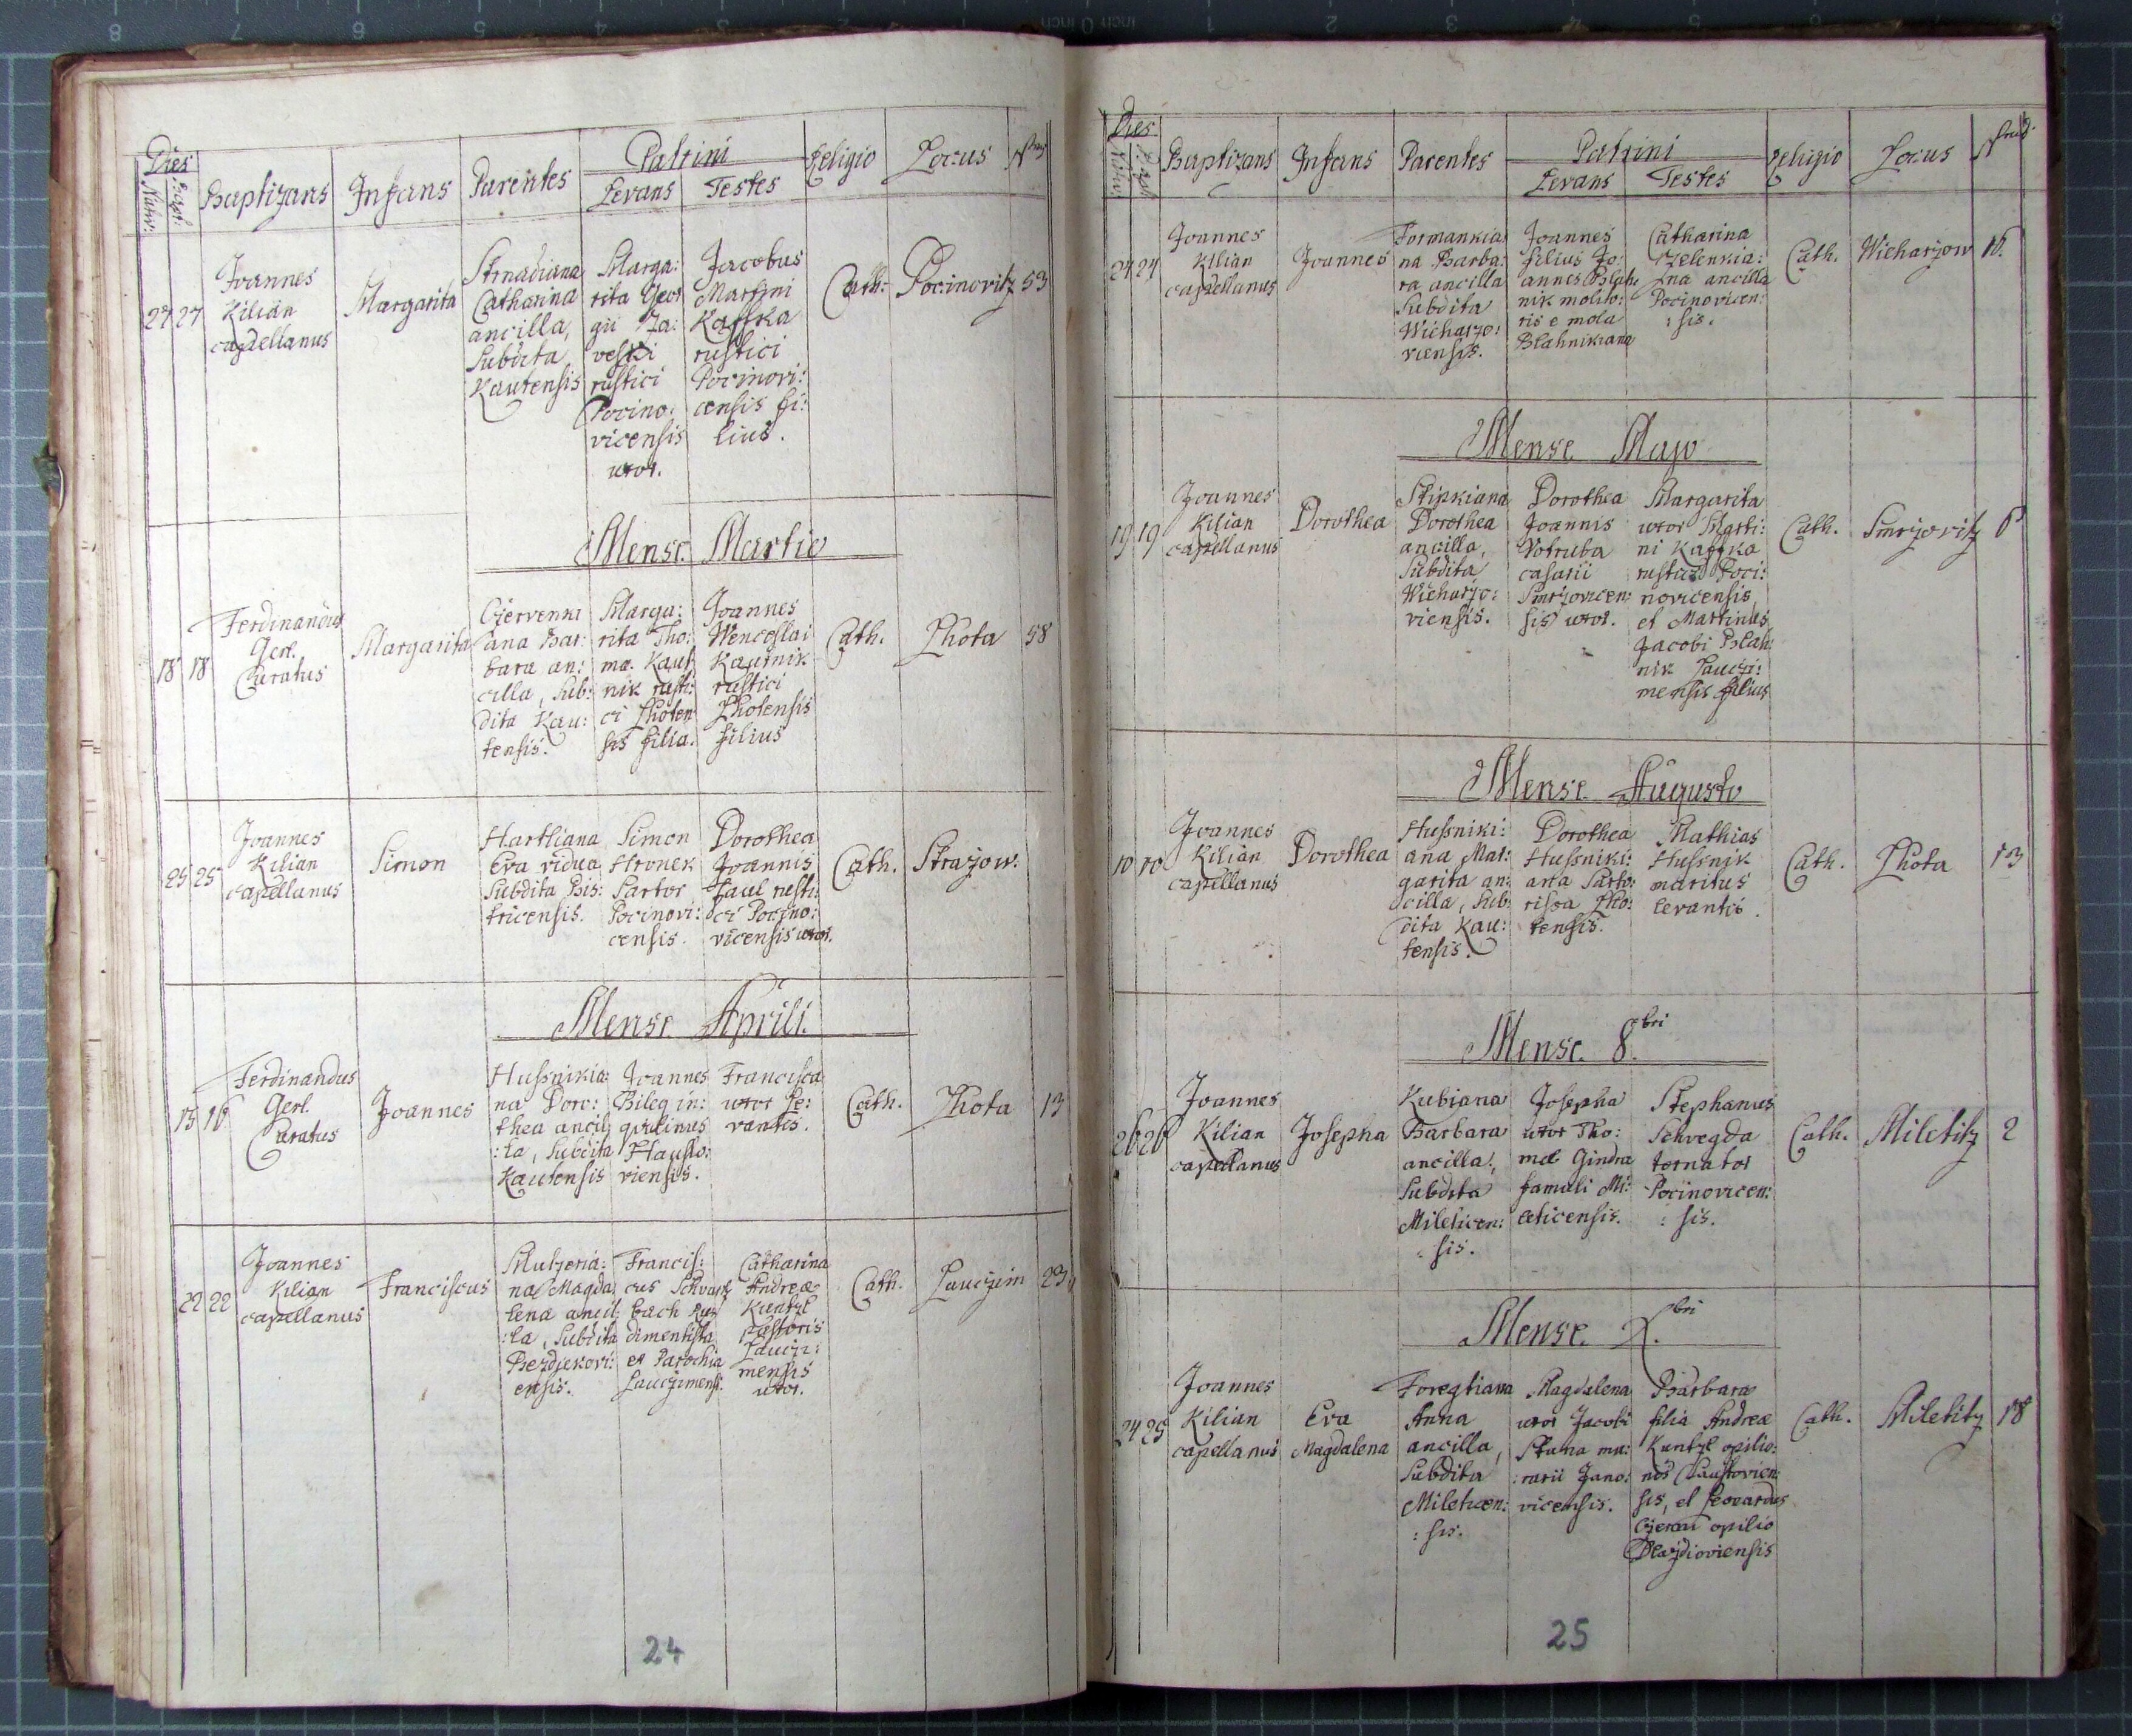 Dies
Nativ:
Bapt:
Baptizans
Infans
Parentes
Patrini
Levans
Testes
Religio
Locus
27
27
Joannes
Kilian
capellanus
Margarita
Strnadiana
Catharina
ancilla,
Subdita
Kautensis
Marga:
rita Geor
gii Ja:
veski
rustici
Pocino:
vicensis
uxor.
Jacobus
Martini
Kaffka
rustici
Pocinovi:
censis fi:
lius.
Cath:
Pocinovitz
53
Mense Martio
18
18
Ferdinandus
Gerl.
Curatus
Margarita
Czervenki
ana Bar:
bara an:
cilla, Sub:
dita Kau:
tensis.
Marga:
rita Tho:
mæ Kaut
nik rusti:
ci Lhoten
sis filia.
Joannes
Wenceslai
Kautnik
rustici
Lhotensis
filius
Cath.
Lhota
58
25
25
Joannes
Kilian
capellanus
Simon
Hartliana
Eva vidua
Subdita Bis:
tricensis.
Simon
Hronek
Sartor
Pocinovi:
censis.
Dorothea
Joannis
Paul rusti:
ci Pocino:
vicensis uxor.
Cath.
Strazow.
Mense Aprili.
15
16
Ferdinandus
Gerl.
Curatus
Joannes
Hussnikia
na Doro:
thea ancil
:la, Subdita
Kautensis
Joannes
Bileq in:
quilinus
Hausto:
viensis.
Francisca
uxor Le:
vantis.
Cath.
Lhota
13
22
22
Joannes
Kilian
capellanus
Franciscus
Mulzeria:
na Magda
lena ancil:
:la, Subdita
Bezdiekovi:
ensis.
Francis:
cus Schvartz
bach Ru
dimentista
ex Parochia
Lauczimens:
Catharina
Andreæ
Kuntzl
pastoris
Lauczi:
mensis
uxor.
Cath.
Lauczim
23
24
Dies.
Nativ:
Bapt
Baptizans
Infans
Parentes
Patrini
Levans
Testes
Religio
Locus
24
24
Joannes
Kilian
capellanus
Joannes
Formankia
na Barba:
ra ancilla
Subdita
Wicharzo:
viensis.
Joannes
filius Jo:
annis Blah
nik molito:
ris e mola
Blahnikiana
Catharina
Zelenkia:
na ancilla
Pocinovicen:
:sis.
Cath.
Wicharzow
16
Mense Majo
19
19
Joannes
Kilian
capellanus
Dorothea
Stipkiana
Dorothea
ancilla,
Subdita
Wicharzo:
viensis.
Dorothea
Joannis
Votruba
casarii
Smrzovicen:
sis uxor.
Margarita
uxor Marti:
ni Kaffka
rustici Poci:
novicensis
et Martinus
Jacobi Blah
nik Lauczi:
mensis filius
Cath.
Smrzovitz
6
Mense Augusto
10
10
Joannes
Kilian
capellanus
Dorothea
Hussniki:
ana Mar:
garita an:
cilla, Sub:
dita Kau:
tensis.
Dorothea
Hussniki:
ana Sarto:
rissa Lho:
tensis.
Mathias
Hussnik
maritus
levantis.
Cath.
Lhota
13
Mense 8.bri
26
26
Joannes
Kilian
capellanus
Josepha
Kubiana
Barbara
ancilla,
Subdita
Mileticen:
:sis.
Josepha
uxor Tho:
mæ Gindra
famuli Mi:
leticensis.
Stephanus
Schvegda
tornator
Pocinovicen:
:sis.
Cath.
Miletitz
2
Mense X.bri
24
25
Joannes
Kilian
capellanus
Eva
Magdalena
Foregtiana
Anna
ancilla,
Subdita
Mileticen:
:sis.
Magdalena
uxor Jacobi
Skana mu:
:rarii Jano:
vicensis.
Barbara
filia Andreæ
Kuntzl opilio:
nis Haustovien:
sis, et Leonardus
opilio
Cath.
Miletitz
18
25